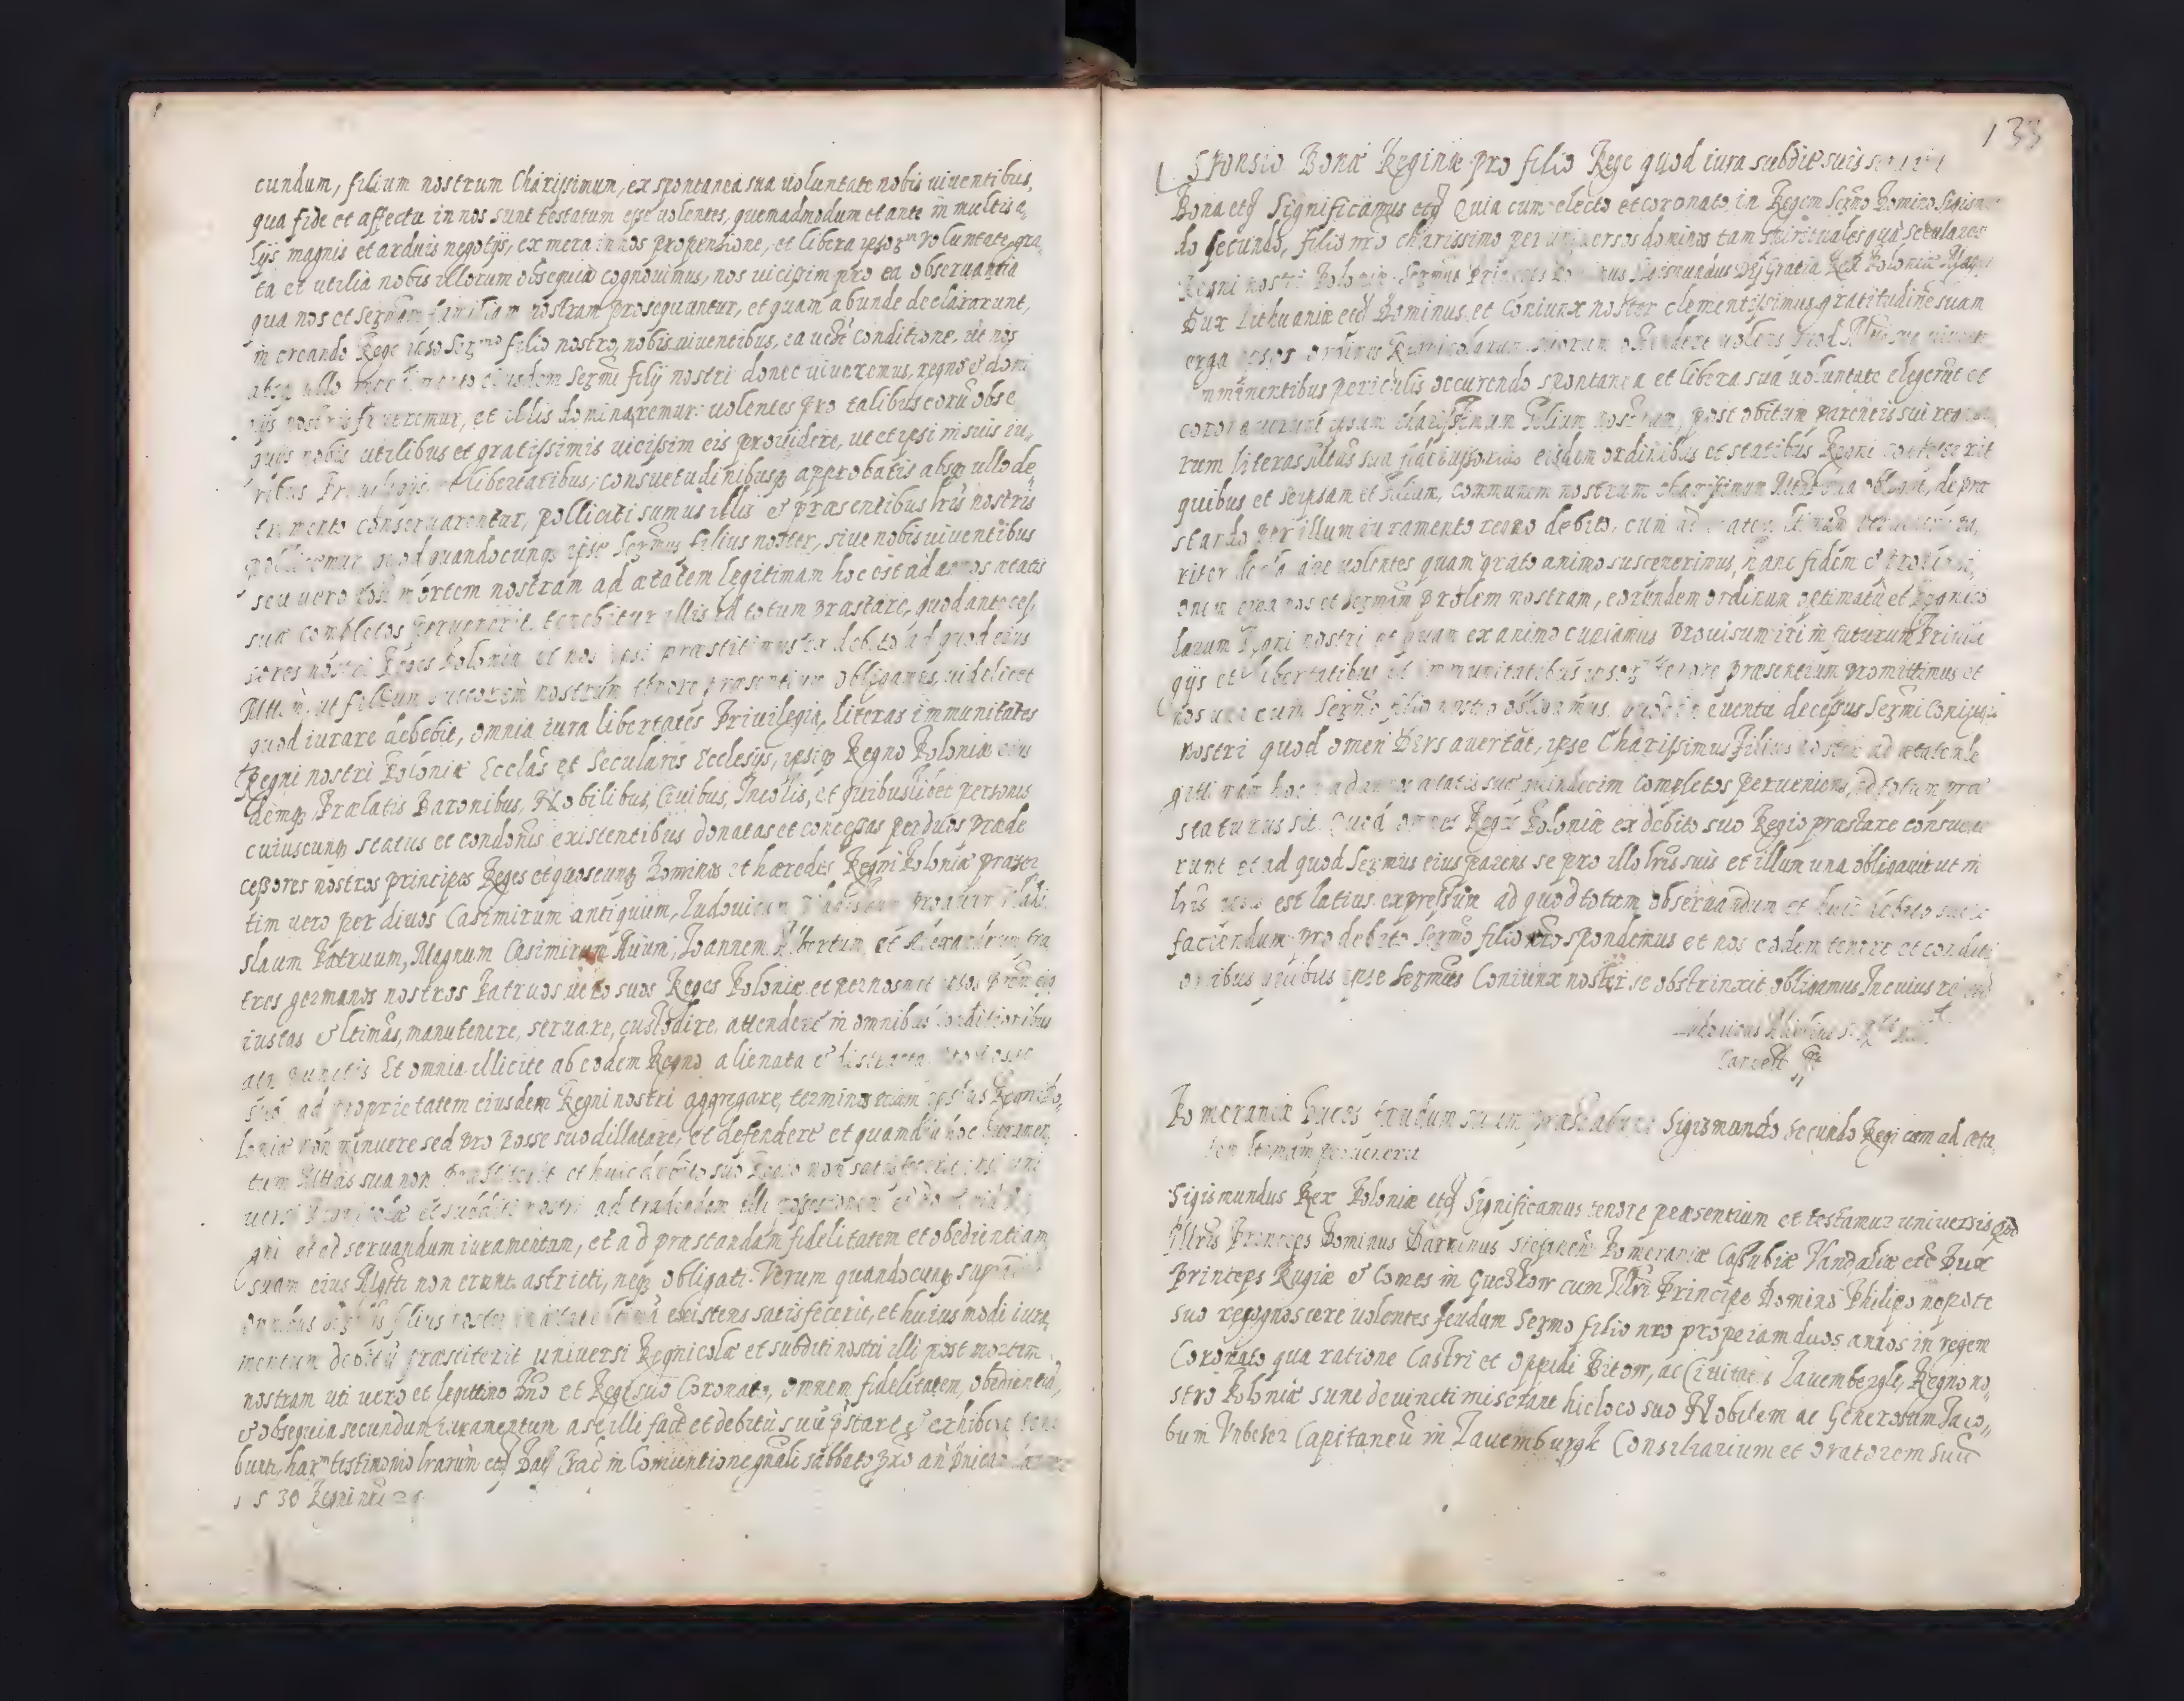 cundum, filium nostrum Charissimum, ex spontanea sua uoluntate nobis uiuentibus,
qua fide et affectu in nos sunt testatum esse uolentes, quemadmodum et ante in multis a,
lijs magnis et arduis negotijs, ex mera in nos propensione, et libera ipsorum uoluntate, gra,
ta et utilia nobis illorum obsequia cognouimus, nos uicissim pro ea obseruantia
qua nos et Sermam familiam nostram prosequuntur, et quam abunde declararunt,
in creando Rege ipso Sermo filio nostro, nobis uiuentibus, ea uere conditione, ut nos
absq ullo eiusdem Sermi filij nostri donec uiueremus, regno et domi
nijs nostris frueremur, et illis dominaremur: uolentes pro talibus eoru obse
quijs nobis utilibus et gratissimis uicissim eis prouidere, ut et ipsi in suis iu,
ribus Priuilegijs et libertatibus, consuetudinibusq approbatis absq ullo de,
trimento conseruarentur, polliciti sumus illis et praesentibus lris nostris
pollicemur quod quandocunq ipse Sermus filius noster, siue nobis uiuentibus
seu uero post mortem nostram ad aetatem legitimam hoc est ad annos aetatis
suae completos peruenerit, tenebitur illis id totum praestare, quod anteces,
sores nostri Reges Poloniae et nos ipsi praestitimus ex debito ad quod eius
ut filium nostrum tenore praesentium obligamus, uidelicet
quod iurare debebit, omnia iura libertates Priuilegia, literas immunitates
Regni nostri Poloniae Ecclas et Seculares Ecclesijs, ipsiq Regno Poloniae eius
demq Praelatis Baronibus, Nobilibus, Ciuibus, Incolis, et quibuslibet personis
cuiuscunq status et condonis existentibus donatas et concessas per diuos praede
cessores nostros principes Reges et quoscunq Dominos et haeredes Regni Poloniae praeser
tim uero per diuos Casimirum antiquum, Ludouicum proauum Vladi
slaum Patruum, Magnum Casimirum Auum, Ioannem Albertum et Alexandrum fra
tres germanos nostros Patruos uero suos Reges Poloniae et per nosmet
iustas et ltimas, manutenere, seruare, custodire, attendere in omnibus conditionibus
ac punctis Et omnia illicite ab eodem Regno alienata et distracta
suo ad proprietatem eiusdem Regni nostri aggregare, terminos etiam ipsius Regni Po,
loniae non minuere sed pro posse suo dillatare, et defendere et quamdiu hoc iuramen,
tum Mttas sua non praestiterit et huic debito suo non satisfecerit
uersi Regnicolae et subditi nostri ad tradendam illi possessionem
gni et ad seruandum iuramentum, et ad praestandam fidelitatem et obedientiam
suam eius Mtti non erunt astricti, neq obligati. Verum quandocunq
omnibus filius noster in aetate ltima existens satisfecerit, et huiusmodi iura,
mentum debitu praestiterit uniuersi Regnicolae et subditi nostri illi post mortem
nostram uti uero et legittimo Dno et Regi suo Coronato, omnem fidelitatem, obedientia,
et obsequia secundum iuramentum a se illi fact et debitu suu pstare et exhibere tene
buntr, harum testimonio lrarum etc Dat Crac in Conuentione gnali sabbato
1530 Regni nri

133
Sponsio Bonae Reginae pro filio Rege quod iura subdit suis
Bona etc Significamus etc Quia cum electo et coronato in Regem Sermo Domino Sigism
do secundo, filio nro charissimo per uniuersos dominos tam spirituales qua seculares
Regni nostri Poloniae Sermus Princeps Dominus Sigismundus Dei Gratia Rex Poloniae Mag
Dux Lithuaniae etc Dominus et Coniunx noster clementissimus gratitudine suam
erga ipsos ordines Regnicolarum suorum ostendere uolens quod
imminentibus periculis occurendo spontanea et libera sua uoluntate elegerut et
coronauerunt ipsum charissimum filium nostrum, post obitum parentis sui
rum literas Mttas sua fideiussorias eisdem ordinibus et statibus Regni
quibus et seipsam et filium, communem nostrum charissimum obligat, de prae
stando per illum iuramento regno debito, cum
riter declarare uolentes quam grato animo susceperimus, hanc fidem et
onem erga nos et Sermam prolem nostram, eorundem ordinum optimatu et Regnico
larum Regni nostri et quam ex animo cupiamus prouisum iri in futurum Priuile
gijs et libertatibus et immunitatibus ipsorum tenore praesentium promittimus et
nos una cum Sermo filio nostro obligamus, quod in euentu decessus Sermi Coniugis
nostri quod omen Ders auertat, ipse Charissimus Filius noster ad aetatem le
gittimam hoc est ad annos aetatis suae quindecim completos perueniens, id totum prae
staturus sit. Quod omnes Reges Poloniae ex debito suo Regio praestare consueue
runt et ad quod Sermus eius parens se pro illo lris suis et illum una obligauit ut in
lris est latius expressum ad quod totum obseruandum et huic debito
faciendum pro debito Sermo filio nro spondemus et nos eodem tenore et conditi
onibus quibus ipse Sermus Coniunx noster se obstrinxit, obligamus In cuius rei
Ludouicus
Cancell

Pomeraniae Duces feudum suum Sigismundo Secundo Regi cum ad aeta,
tem ltimam peruenerit
Sigismundus Rex Poloniae etc Significamus tenore praesentium et testamur uniuersis Qod
Illris Princeps Dominus Barninus Stetinen Pomeraniae Cassubiae Vandaliae etc Dux
Princeps Rugiae et Comes in Guczkow cum Illri Principe Domino Philipo nepote
suo recognoscere uolentes feudum Sermo filio nro prope iam duos annos in regem
Coronato qua ratione Castri et oppidi Bitow, ac Ciuitatis Lauembergk, Regno no,
stro Poloniae sunt deuincti miserant hic loco suo Nobilem ac Generosum Iaco,,
bum Vnbeser Capitaneu in Lauemburgk Consiliarium et oratorem suu